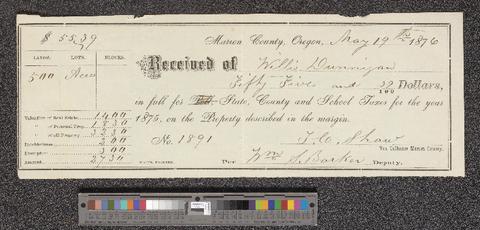 $ 55.39
LANDS. LOTS. BLOCKS.
500 Acres
Valuation of Real Estate, 1400
" of Personal Prop.
" of all Property, 3230
Indebtedness, 200
Exemption, 300
Amount, 2730
Marion County, Oregon, May 19th 1876
Received of Willis Dunnigan
Fifty Five and 39/100 Dollars,
in full for Poll, State, County and School Taxes for the year
1875, on the Property described in the margin.
No. 1891
T. C. Shaw
Tax Collector Marion County.
Per Wm. S. Barker, Deputy.